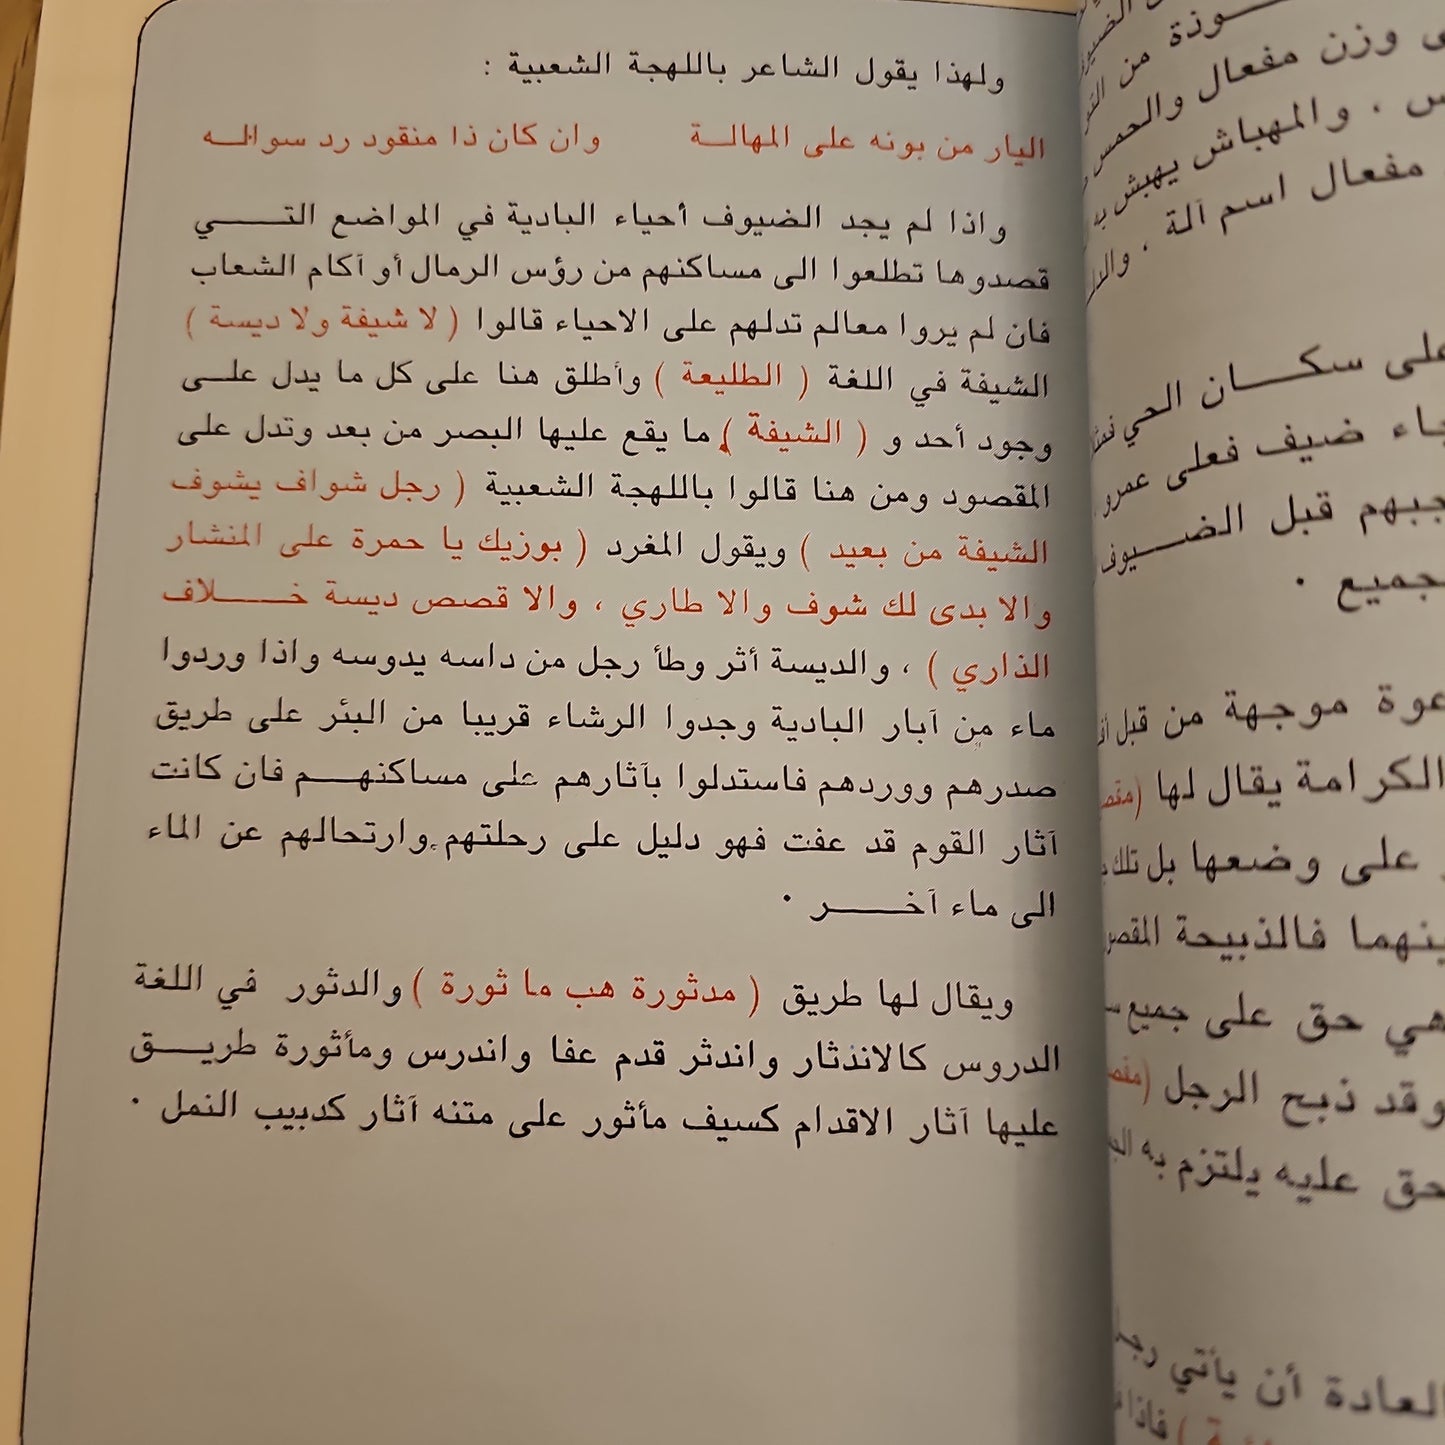 ولهذا يقول الشاعر باللهجة الشعبية :
اليار من بونه على المهالــة وان كان ذا منقود رد سوالـه
واذا لم يجد الضيوف أحياء البادية في المواضع التــــي
قصدوها تطلعوا الى مساكنهم من رؤس الرمال أو آكام الشعاب
فان لم يروا معالم تدلهم على الاحياء قالوا ( لا شيفة ولا ديسة )
الشيفة في اللغة ( الطليعة ) وأطلق هنا على كل ما يدل علــى
وجود أحد و ( الشيفة ) ما يقع عليها البصر من بعد وتدل على
المقصود ومن هنا قالوا باللهجة الشعبية ( رجل شواف يشوف
الشيفة من بعيد ) ويقول المغرد ( بوزيك يا حمرة على المنشار
والا بدى لك شوف والا طاري ، والا قصص ديسة خــــلاف
الذاري ) ، والديسة أثر وطأ رجل من داسه يدوسه واذا وردوا
ماء من آبار البادية وجدوا الرشاء قريبا من البئر على طريق
صدرهم ووردهم فاستدلوا بآثارهم على مساكنهــــم فان كانت
آثار القوم قد عفت فهو دليل على رحلتهم وارتحالهم عن الماء
الى ماء آخــــــر .
ويقال لها طريق ( مدثورة هب ما ثورة ) والدثور في اللغة
الدروس كالانذثار واندثر قدم عفا واندرس ومأثورة طريــــق
عليها آثار الاقدام كسيف مأثور على متنه آثار كدبيب النمل .
وزن مفعال والحمس
والمهباش يهبش
مفعال اسم آلة . 
سكــــان الحي
ضيف فعلى عمرو
قبل الضــــيوف
موجهة من قبل
الكرامة يقال لها
على وضعها بل تلك
فالذبيحة
هي حق على جميع
وقد ذبح الرجل
حق عليه يلتزم به
العادة أن يأتي
فاذا